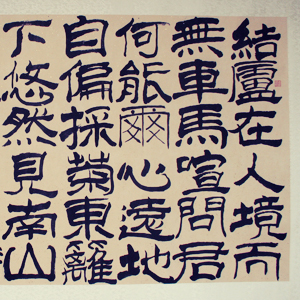 結廬在人境而
無車馬喧問君
何能爾心遠地
自偏採菊東籬
下悠然見南山